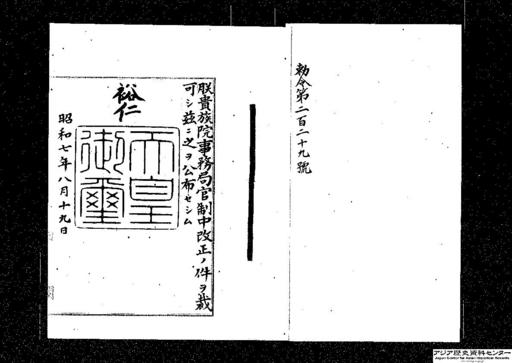 勅令第二百二十九號
朕貴族院事務局官制中改正ノ件ヲ裁
可シ茲ニ之ヲ公布セシム
裕仁
天皇
御璽
昭和七年八月十九日
アジア歴史資料センター
Japan Center for Asian Historical Records